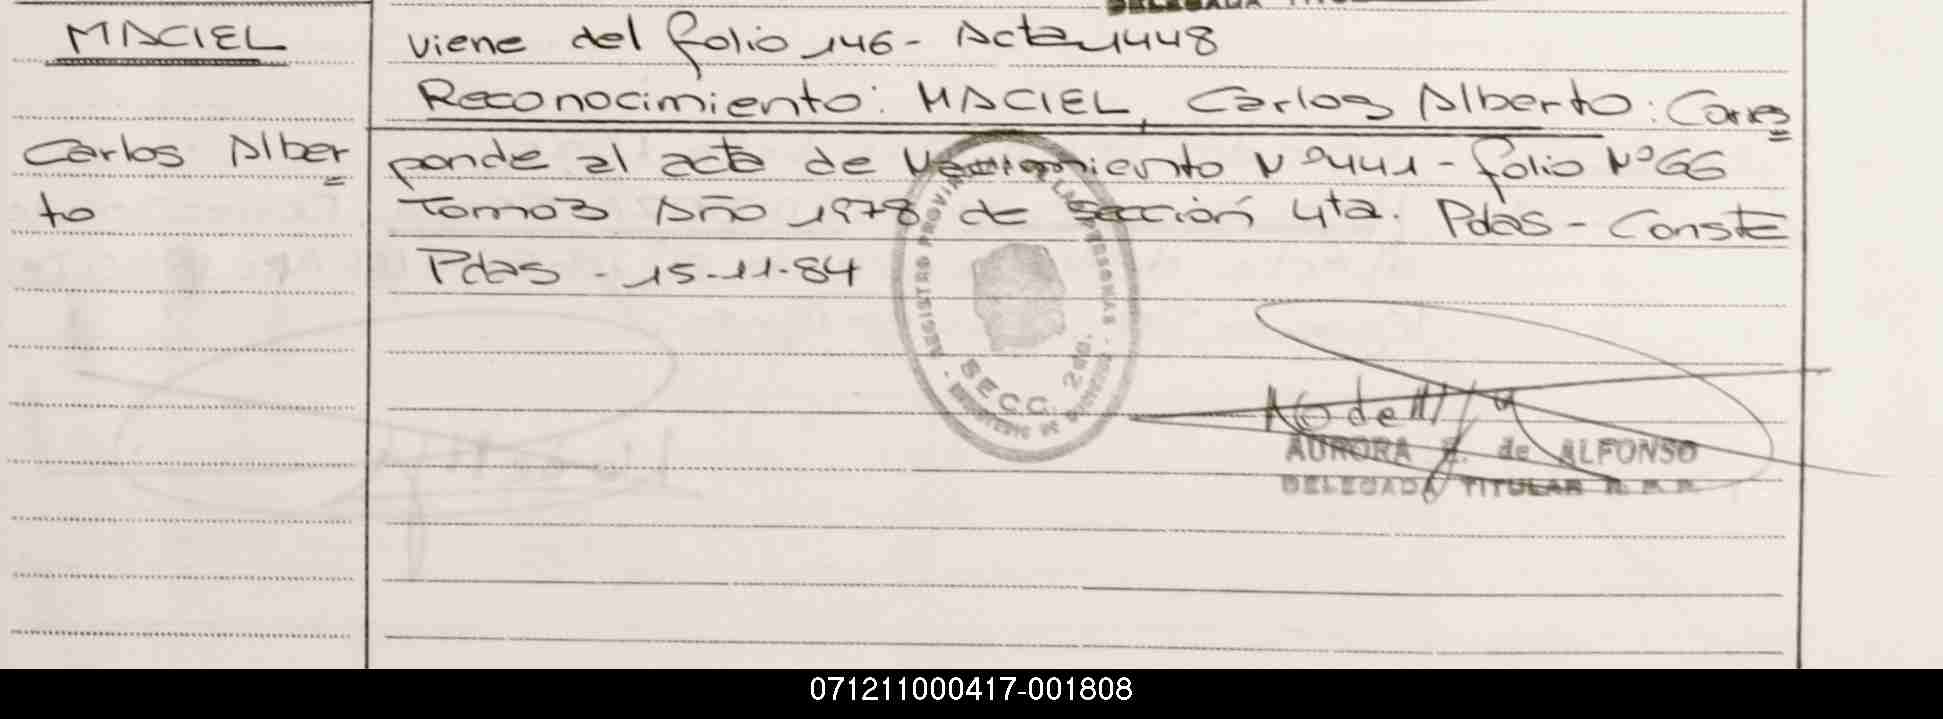 MACIEL
Carlos Alber
to
viene del folio 146 - Acta 1448
Reconocimiento: MACIEL, Carlos Alberto: Corres
ponde al acta de Nacimiento Nº 441 - folio Nº 66
Tomo 3 Año 1978 de sección 4ta. Pdas - Conste
Pdas - 15-11-84
REGISTRO PROVINCIAL DE LAS PERSONAS
MINISTERIO DE GOBIERNO
SECC. 2da.
AURORA E. de ALFONSO
DELEGADA TITULAR R. P. P.
071211000417-001808